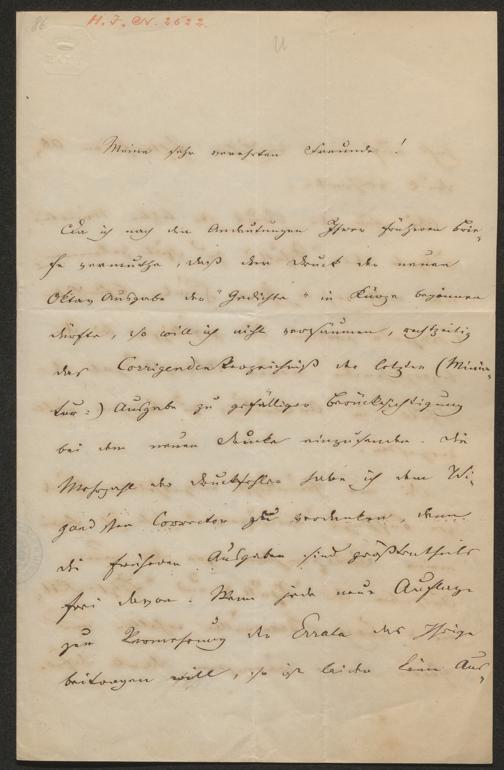 86
H. I. N. 2622.
Meine sehr verehrten Freunde!
Da ich nach den Andeutungen Ihrer früheren Brie-
fe vermuthe, daß der Druck der neuen
Oktav Ausgabe der "Gedichte" in Kürze beginnen
dürfte, so will ich nicht versäumen, rechtzeitig
das Corrigendenverzeichniß der letzten (Minia-
tur=) Ausgabe zu gefälliger Berücksichtigung
bei dem neuen Drucke einzusenden. Die
Mehrzahl der Druckfehler habe ich dem Wi-
gand'schen Corrector zu verdanken, denn
die früheren Ausgaben sind größtentheils
frei davon. Wenn jede neue Auflage
zur Vermehrung der Errata das Ihrige
beitragen will, so ist leider kein Aus-